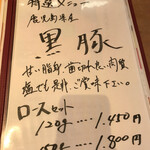 特選メニュー
鹿児島県産
黒豚
甘い脂身、歯切れ良い肉質
塩でも是非ご賞味下さい。
ロースセット
120g……1,450円
1,800円